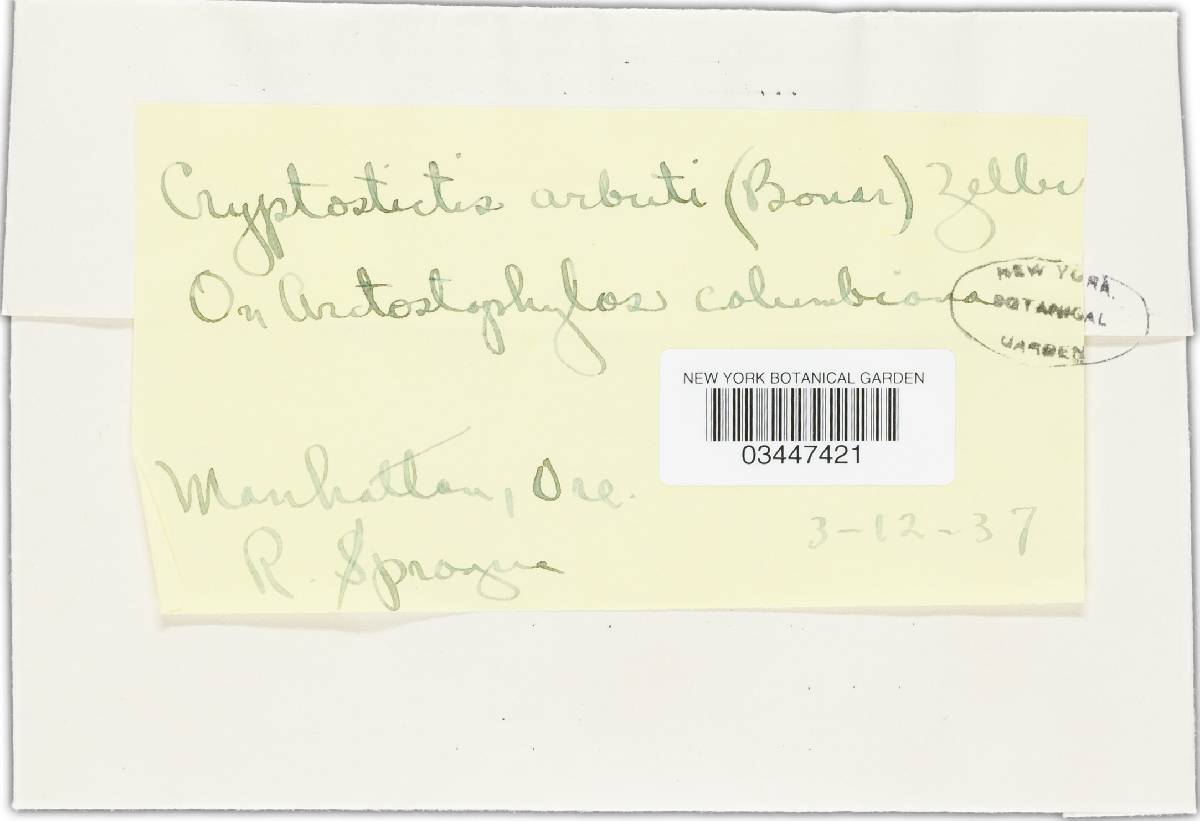 Cryptostictis arbuti (Bonar) Zeller
On Arctostaphylos columbiana
NEW YORK
BOTANICAL
GARDEN
NEW YORK BOTANICAL GARDEN
03447421
Manhattan, Ore.
3-12-37
R. Sprague